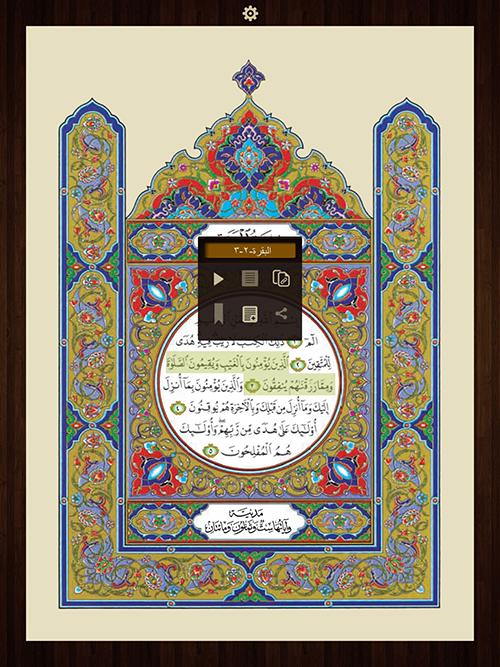 البقرة-٢-٣
الٓمٓ ذَٰلِكَ ٱلْكِتَٰبُ لَا رَيْبَ فِيهِ هُدًى
لِّلْمُتَّقِينَ ٢ ٱلَّذِينَ يُؤْمِنُونَ بِٱلْغَيْبِ وَيُقِيمُونَ ٱلصَّلَوٰةَ
وَمِمَّا رَزَقْنَٰهُمْ يُنفِقُونَ ٣ وَٱلَّذِينَ يُؤْمِنُونَ بِمَآ أُنزِلَ
إِلَيْكَ وَمَآ أُنزِلَ مِن قَبْلِكَ وَبِٱلْأَخِرَةِ هُمْ يُوقِنُونَ ٤
أُو۟لَٰٓئِكَ عَلَىٰ هُدًى مِّن رَّبِّهِمْ ۖ وَأُو۟لَٰٓئِكَ
هُمُ ٱلْمُفْلِحُونَ ٥
مدنية
وآياتها ست وثمانون ومائتان